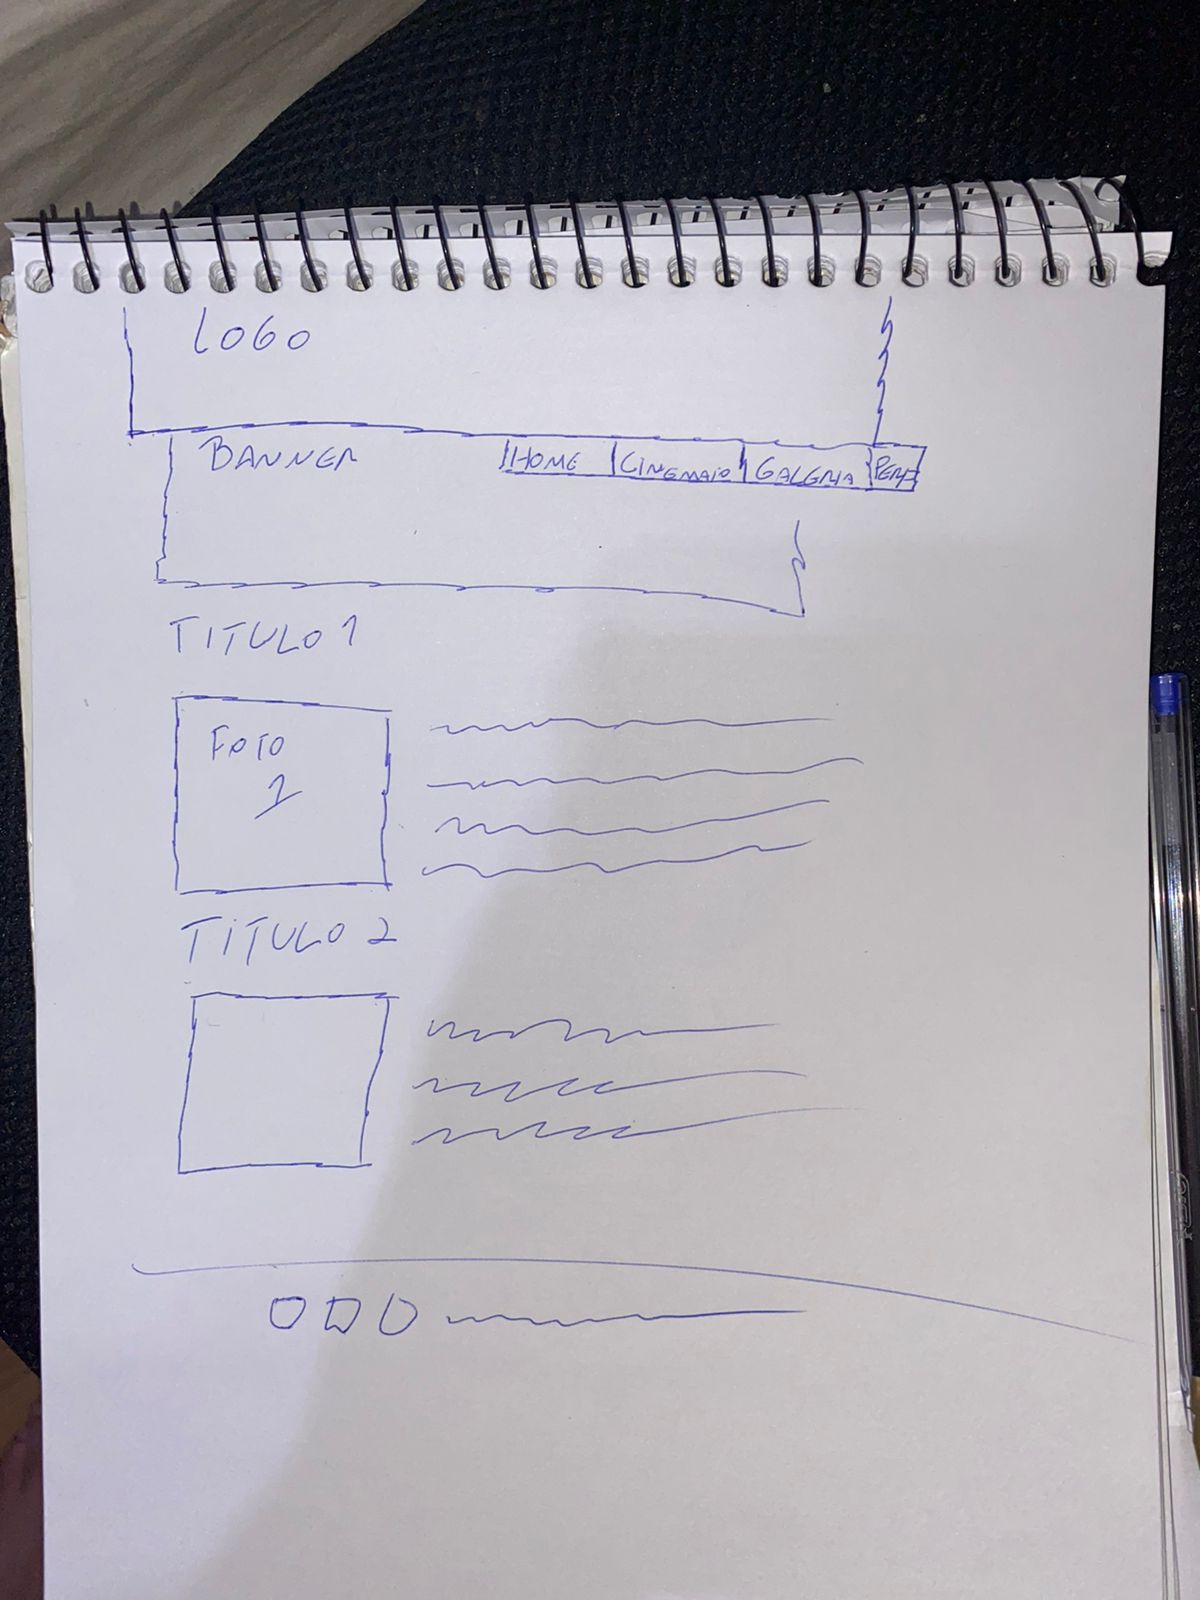 LOGO
BANNER HOME CINEMAIO GALERIA PERF
TITULO 1
FOTO
1
TITULO 2